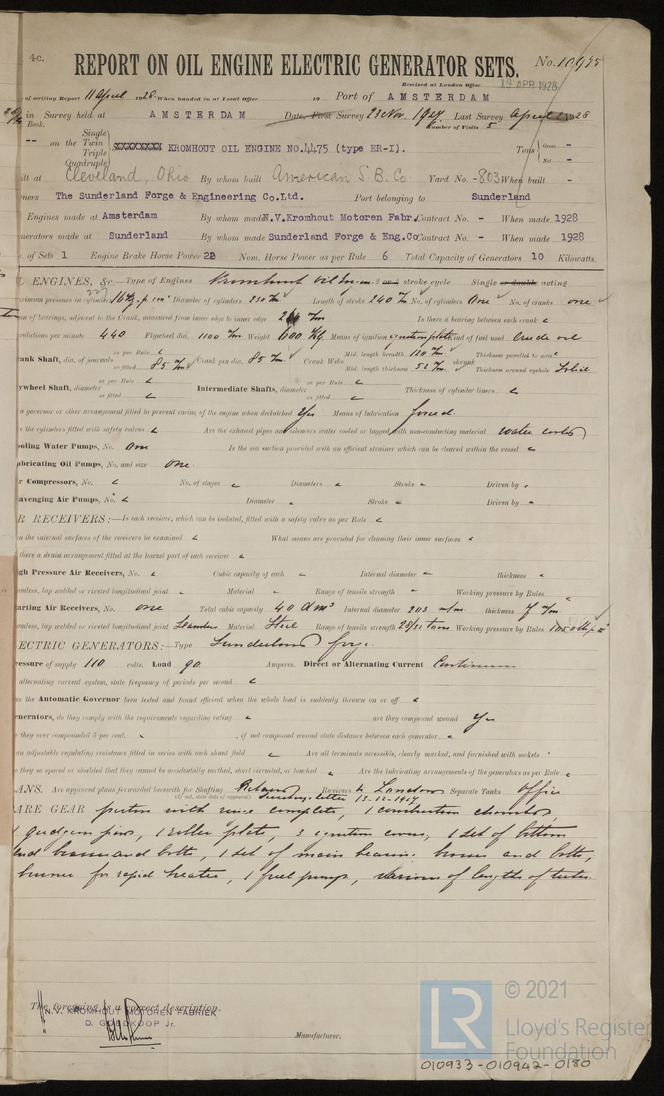 4c.
REPORT ON OIL ENGINE ELECTRIC GENERATOR SETS. No. 10975
Received at London Office 19 APR 1928
of writing Report 11 April 1928 When handed in at Local Office 19 Port of AMSTERDAM
in Survey held at AMSTERDAM Date, First Survey 23 Nov. 1927 Last Survey April 1928
Book. Number of Visits 5
Single
-- on the Twin
Triple
Quadruple
KROMHOUT OIL ENGINE NO.4475 (type ER-I). Tons Gross -
Net -
ilt at Cleveland, Ohio By whom built American S. B. Co Yard No. -803 When built -
ners The Sunderland Forge & Engineering Co.Ltd. Port belonging to Sunderland
Engines made at Amsterdam By whom made N.V.Kromhout Motoren Fabr. Contract No. - When made 1928
nerators made at Sunderland By whom made Sunderland Forge & Eng.Co Contract No. - When made 1928
. of Sets 1 Engine Brake Horse Power 22 Nom. Horse Power as per Rule 6 Total Capacity of Generators 10 Kilowatts.
L ENGINES, &c.—Type of Engines Kromhout oil 2 or 4 stroke cycle Single or double acting
aximum pressure in cylinders Diameter of cylinders 230 m/m Length of stroke 240 m/m No. of cylinders One No. of cranks one
an of bearings, adjacent to the Crank, measured from inner edge to inner edge Is there a bearing between each crank
volutions per minute 440 Flywheel dia. 1100 m/m Weight 600 Kg Means of ignition Kind of fuel used Crude oil
rank Shaft, dia. of journals as per Rule as fitted 85 m/m Crank pin dia. 85 m/m Crank Webs Mid. length breadth 120 m/m Mid. length thickness 52 m/m shrunk Thickness parallel to axis Thickness around eyehole Solid
ywheel Shaft, diameter as per Rule as fitted Intermediate Shafts, diameter as per Rule as fitted Thickness of cylinder liners
a governor or other arrangement fitted to prevent racing of the engine when declutched Yes Means of lubrication forced
re the cylinders fitted with safety valves Are the exhaust pipes and silencers water cooled or lagged with non-conducting material water cooled
ooling Water Pumps, No. One Is the sea suction provided with an efficient strainer which can be cleared within the vessel
ubricating Oil Pumps, No. and size One
r Compressors, No. No. of stages Diameters Stroke Driven by
avenging Air Pumps, No. Diameter Stroke Driven by
R RECEIVERS:—Is each receiver, which can be isolated, fitted with a safety valve as per Rule
n the internal surfaces of the receivers be examined What means are provided for cleaning their inner surfaces
there a drain arrangement fitted at the lowest part of each receiver
igh Pressure Air Receivers, No. Cubic capacity of each Internal diameter thickness
amless, lap welded or riveted longitudinal joint Material Range of tensile strength Working pressure by Rules
arting Air Receivers, No. one Total cubic capacity 40 dm³ Internal diameter 203 m/m thickness 7 m/m
amless, lap welded or riveted longitudinal joint Seamless Material Steel Range of tensile strength 28/32 Tons Working pressure by Rules
ECTRIC GENERATORS:—Type Sunderland forge
ressure of supply 110 volts. Load 90 Amperes. Direct or Alternating Current Continuous
alternating current system, state frequency of periods per second
as the Automatic Governor been tested and found efficient when the whole load is suddenly thrown on or off
enerators, do they comply with the requirements regarding rating are they compound wound Yes
is they over compounded 5 per cent. , if not compound wound state distance between each generator
an adjustable regulating resistance fitted in series with each shunt field Are all terminals accessible, clearly marked, and furnished with sockets
re they so spaced or shielded that they cannot be accidentally earthed, short circuited, or touched Are the lubricating arrangements of the generators as per Rule
ANS. Are approved plans forwarded herewith for Shafting Retained Receivers London Separate Tanks office
(If not, state date of approval) Secretary's letter 13-12-1927
ARE GEAR piston with rings complete, 1 combustion chamber,
1 gudgeon pin, 1 roller plate, 3 ignition cones, 1 set of bottom
end brasses and bolts, 1 set of main bearing brasses and bolts,
burner for rapid heater, 1 fuel pump, various of lengths of tubes.
The foregoing is a correct description.
N.V. KROMHOUT MOTOREN FABRIEK
D. GOEDKOOP Jr.
Manufacturer.
LR
© 2021
Lloyd's Register
Foundation
010933-010942-0180